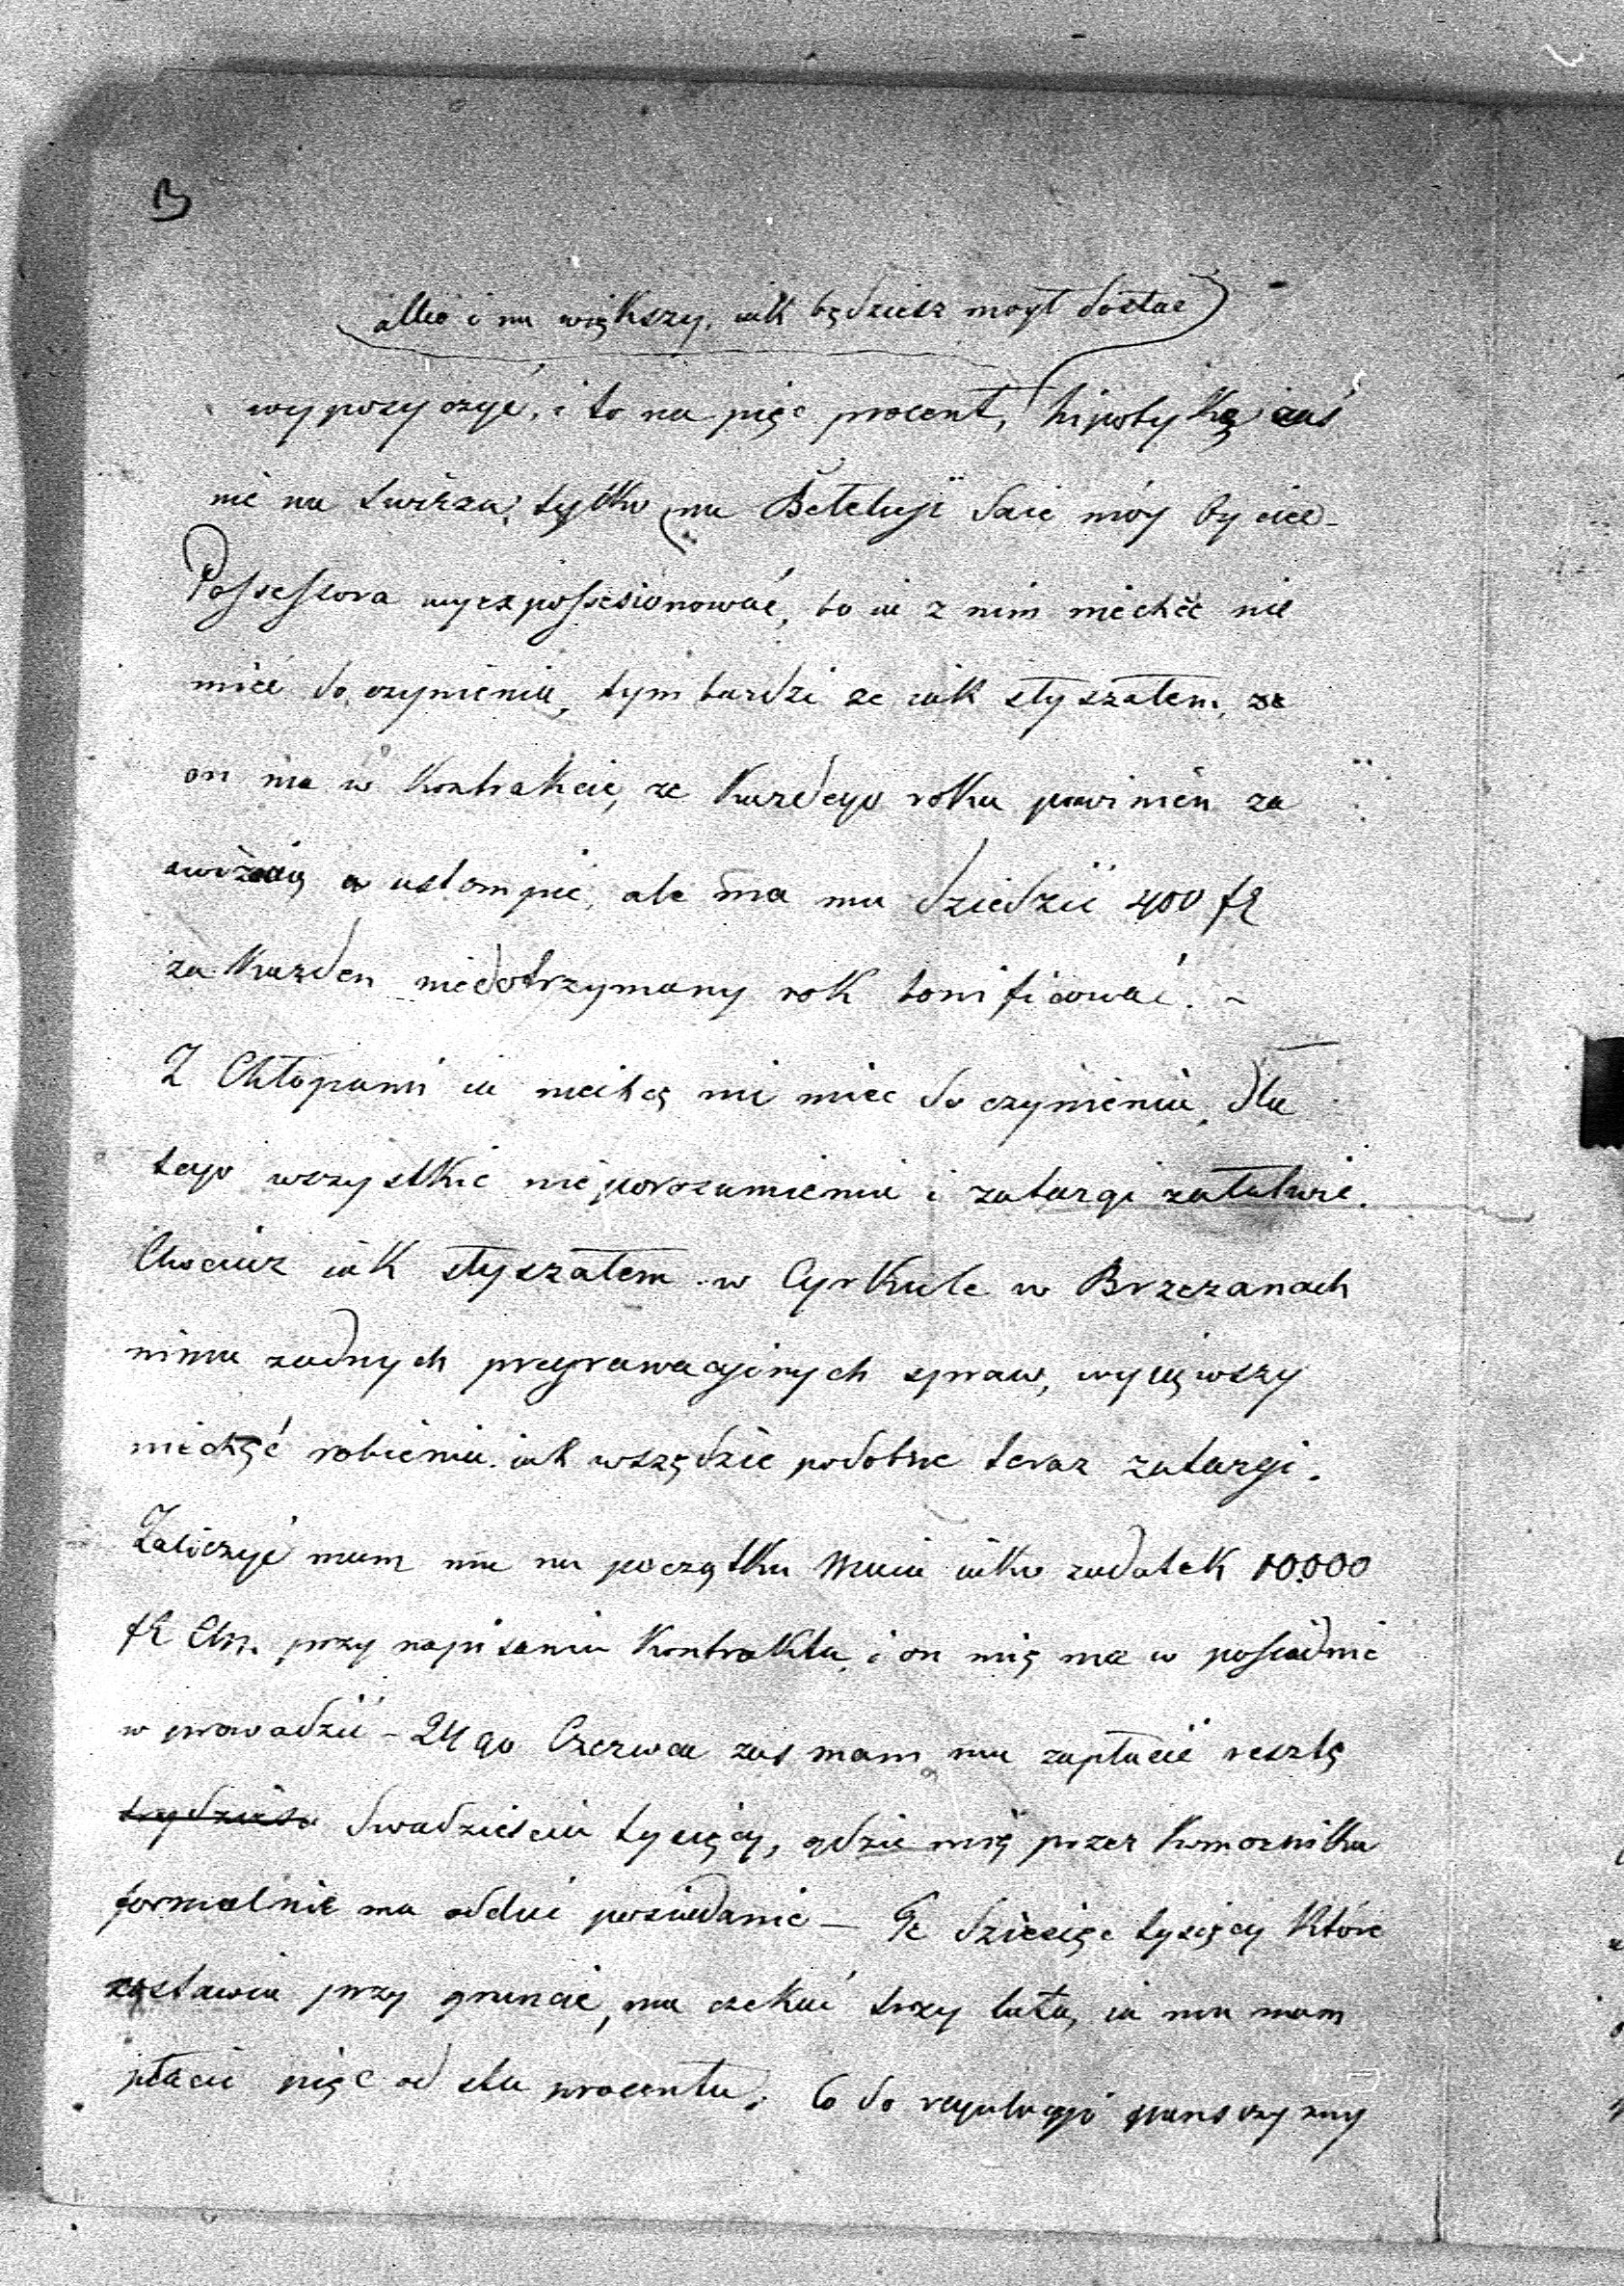 albo i na większy, iak będziesz mógł dostac
wypożyczyć, i to na pięc procent, hipotykę zaś
nie na Swirza, tylko na Betełuji daie móy ojciec –
Possessora wyexpossesionować, bo ia z nim niechcę nie
mieć do czynienia, tym bardzi że iak słyszałem, że
on ma w Kontrakcie, ze Kazdego roku powinien za
awizacią ustompić, ale ma mu dziedzić 400 fR
za Kazden niedotrzymany rok bonificować. –
Z Chłopami ia niechcę nic miec do czynienia, dla
tego wszystkie nieporozumienia i zatargi załatwić.
Chociaz iak słyszałem w Cyrkule w Brzezanach
nima zadnych pregrawacyjnych spraw, wyiąwszy
niechęć robienia iak wszędzie podobne teraz zatargi.
Zaliczyć mam mu na początku Maia iako zadatek 10.000
fR Cm. przy napisaniu Kontraktu, i on mię ma w posiadnie
w prowadzić – 24go Czerwca zas mam mu zapłacić resztę
trydziesci dwadziescia tysięcy, gdzie mię przez Komornika
formalnie ma oddać posiadanie – Te dziesięc tysięcy Które
zostawia przy gruncie, ma czekać trzy lata, ia mu mam
płacić pięc od sta procentu. Co do regulacyi panszczyzny